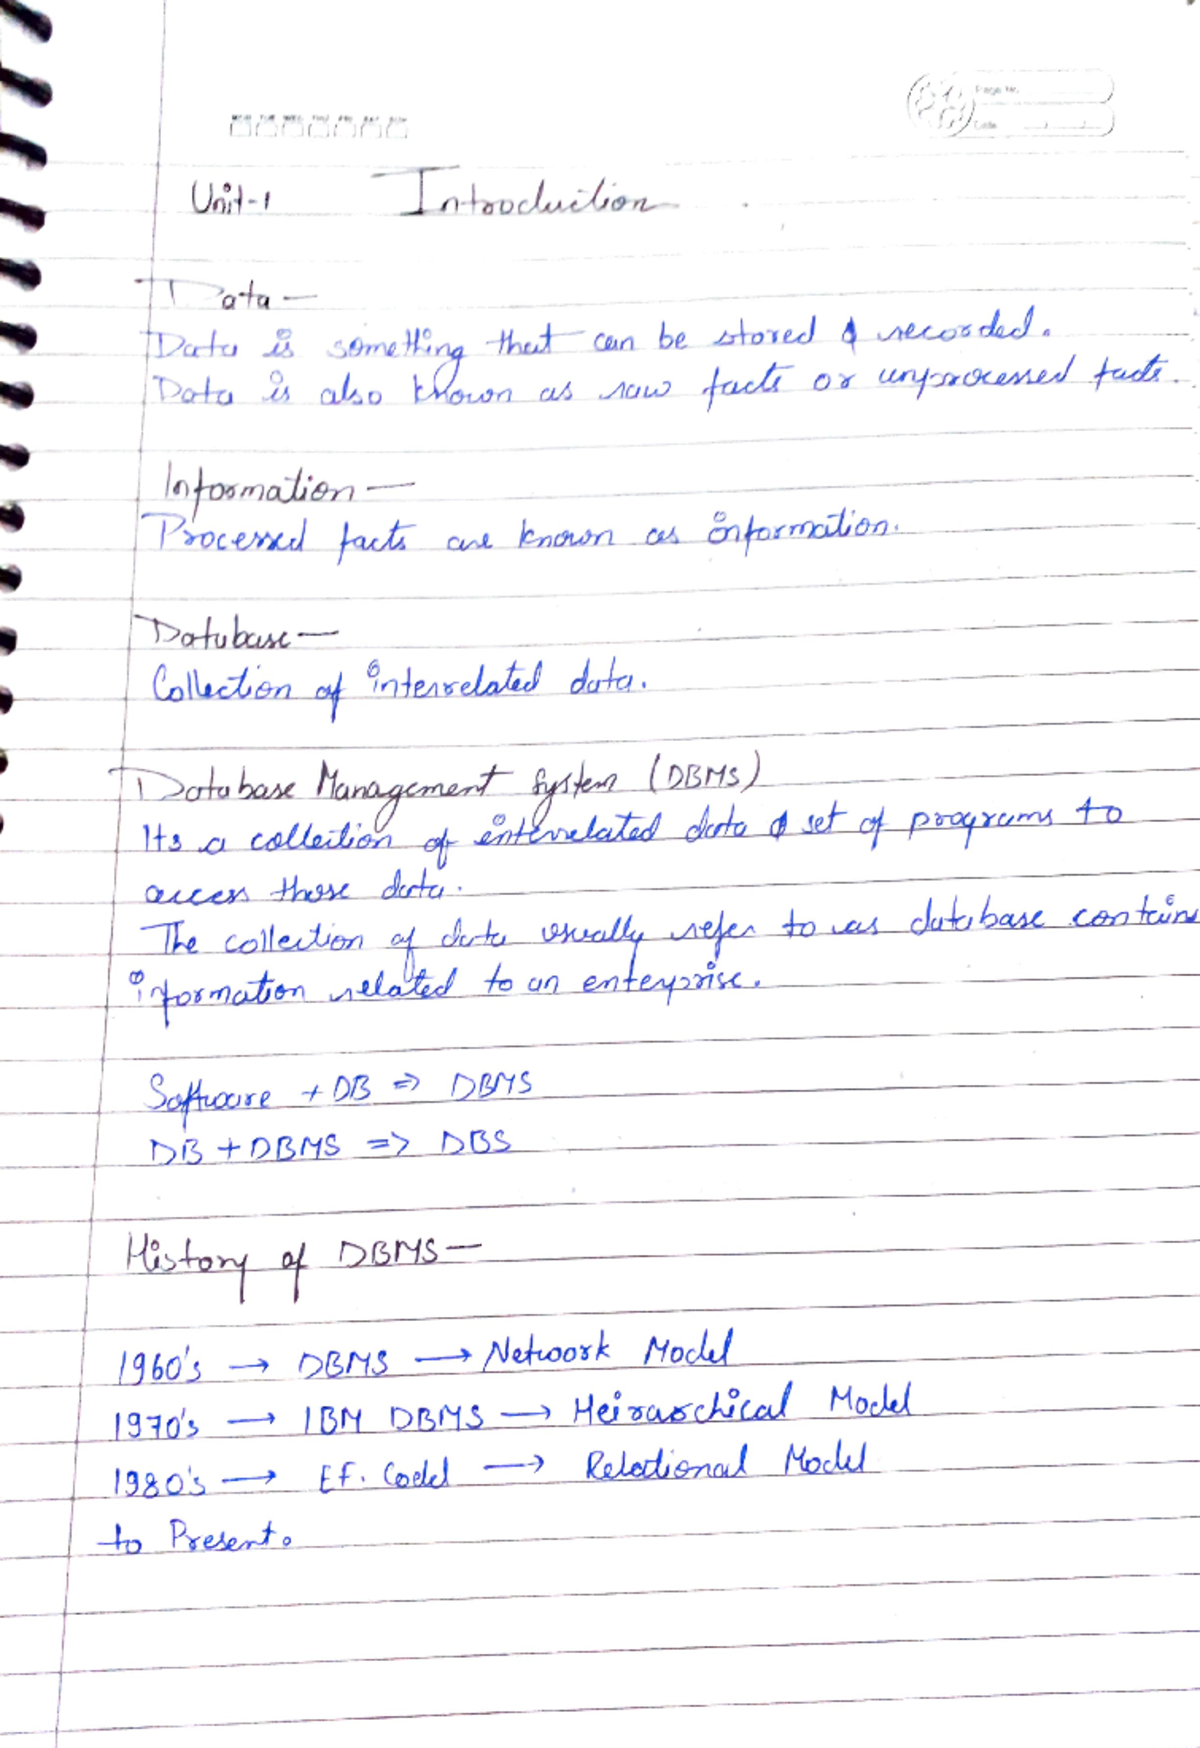 MON TUE WED THU FRI SAT SUN
Page No.
Date
Unit-1 Introduction
Data —
Data is something that can be stored & recorded.
Data is also known as raw facts or unprocessed facts.
Information —
Processed facts are known as information.
Database —
Collection of interrelated data.
Database Management System (DBMS)
Its a collection of interrelated data & set of programs to
access those data.
The collection of data usually refer to as database contains
information related to an enterprise.
Software + DB => DBMS
DB + DBMS => DBS
History of DBMS —
1960's → DBMS → Network Model
1970's → IBM DBMS → Heirarchical Model
1980's → EF. Codd → Relational Model
to Present.